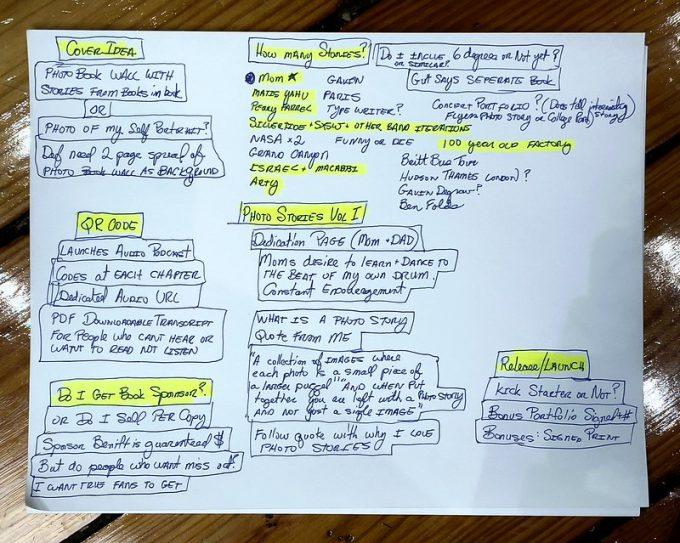 Cover Idea
Photo Book Wall With
Stories From Books in book
OR
Photo of my Self Portrait?
Def need 2 page spread of
Photo Book Wall As Background
How Many Stories?
Do I Inclue 6 degrees or Not yet?
or Similar?
Gut Says Seperate Book
Mom
Gavin
Matis Yahu
Paris
Perry Farrel
Type Writer?
Concert Portfolio? (Does tell interesting story)
Flyers Photo Story or College Port
+ Other Band Iterations
NASA x2
Funny or Die
100 year old Factory
Grand Canyon
Britt Bus Tour
Israel + Macabbi
Hudson Thames London?
Arty
Gavin Degraw?
Ben Folds
QR Code
Launches Audio Podcast
Codes at Each Chapter
Dedicated Audio URL
PDF Downloadable Transcript
For People who cant hear or
want to read not listen
Photo Stories Vol I
Dedication Page (Mom + Dad)
Moms desire to learn + Dance to
the beat of my own drum.
Constant Encouragement
What is a Photo Story
Quote From Me
"A collection of Images where
each photo is a small piece of
a larger puzzel" "And when put
together you are left with a Photo Story
and not just a single image"
Follow quote with why I love
Photo Stories
Do I Get Book Sponsor?
or Do I Sell Per Copy
Sponsor Benifit is guaranteed $
But do people who want miss out?
I want true fans to get
Release/Launch
Kick Starter or Not?
Bonus Portfolio Signed #
Bonuses: Signed Print